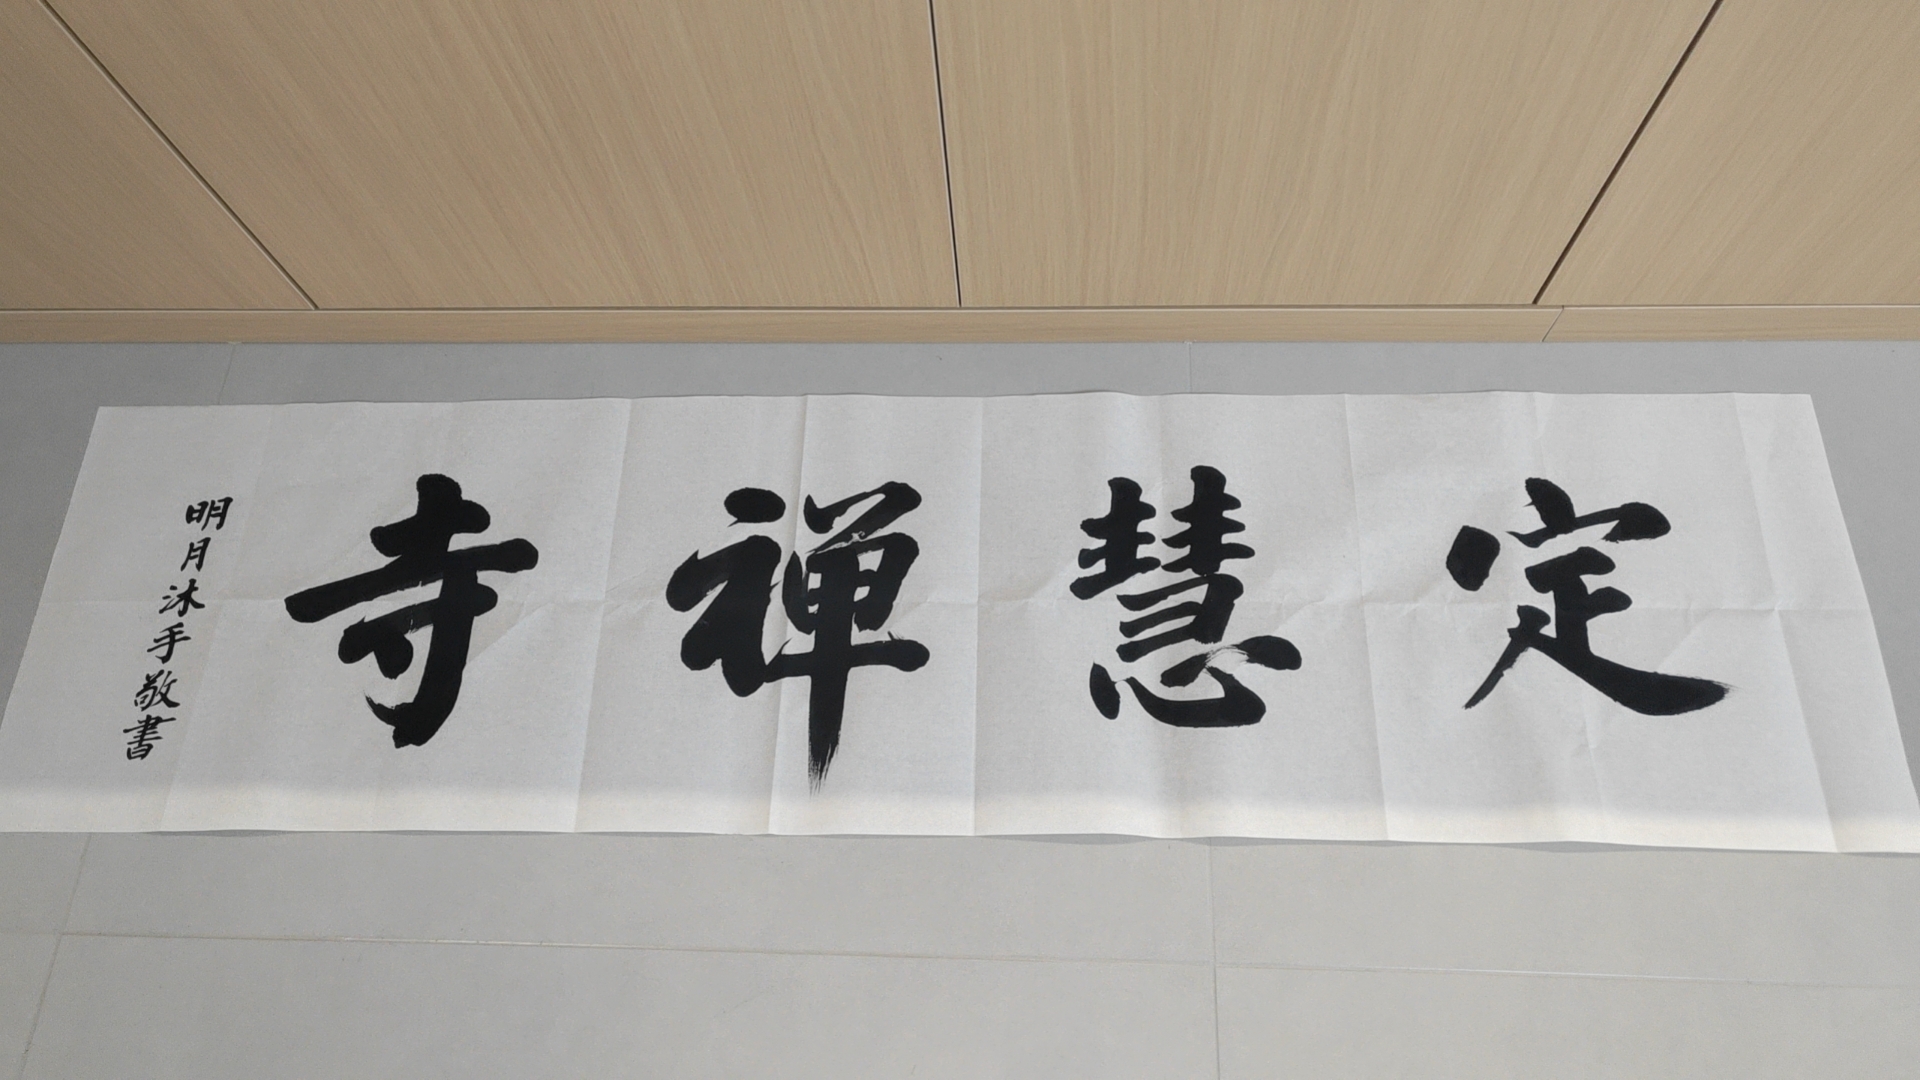 定慧禅寺
明月沐手敬書